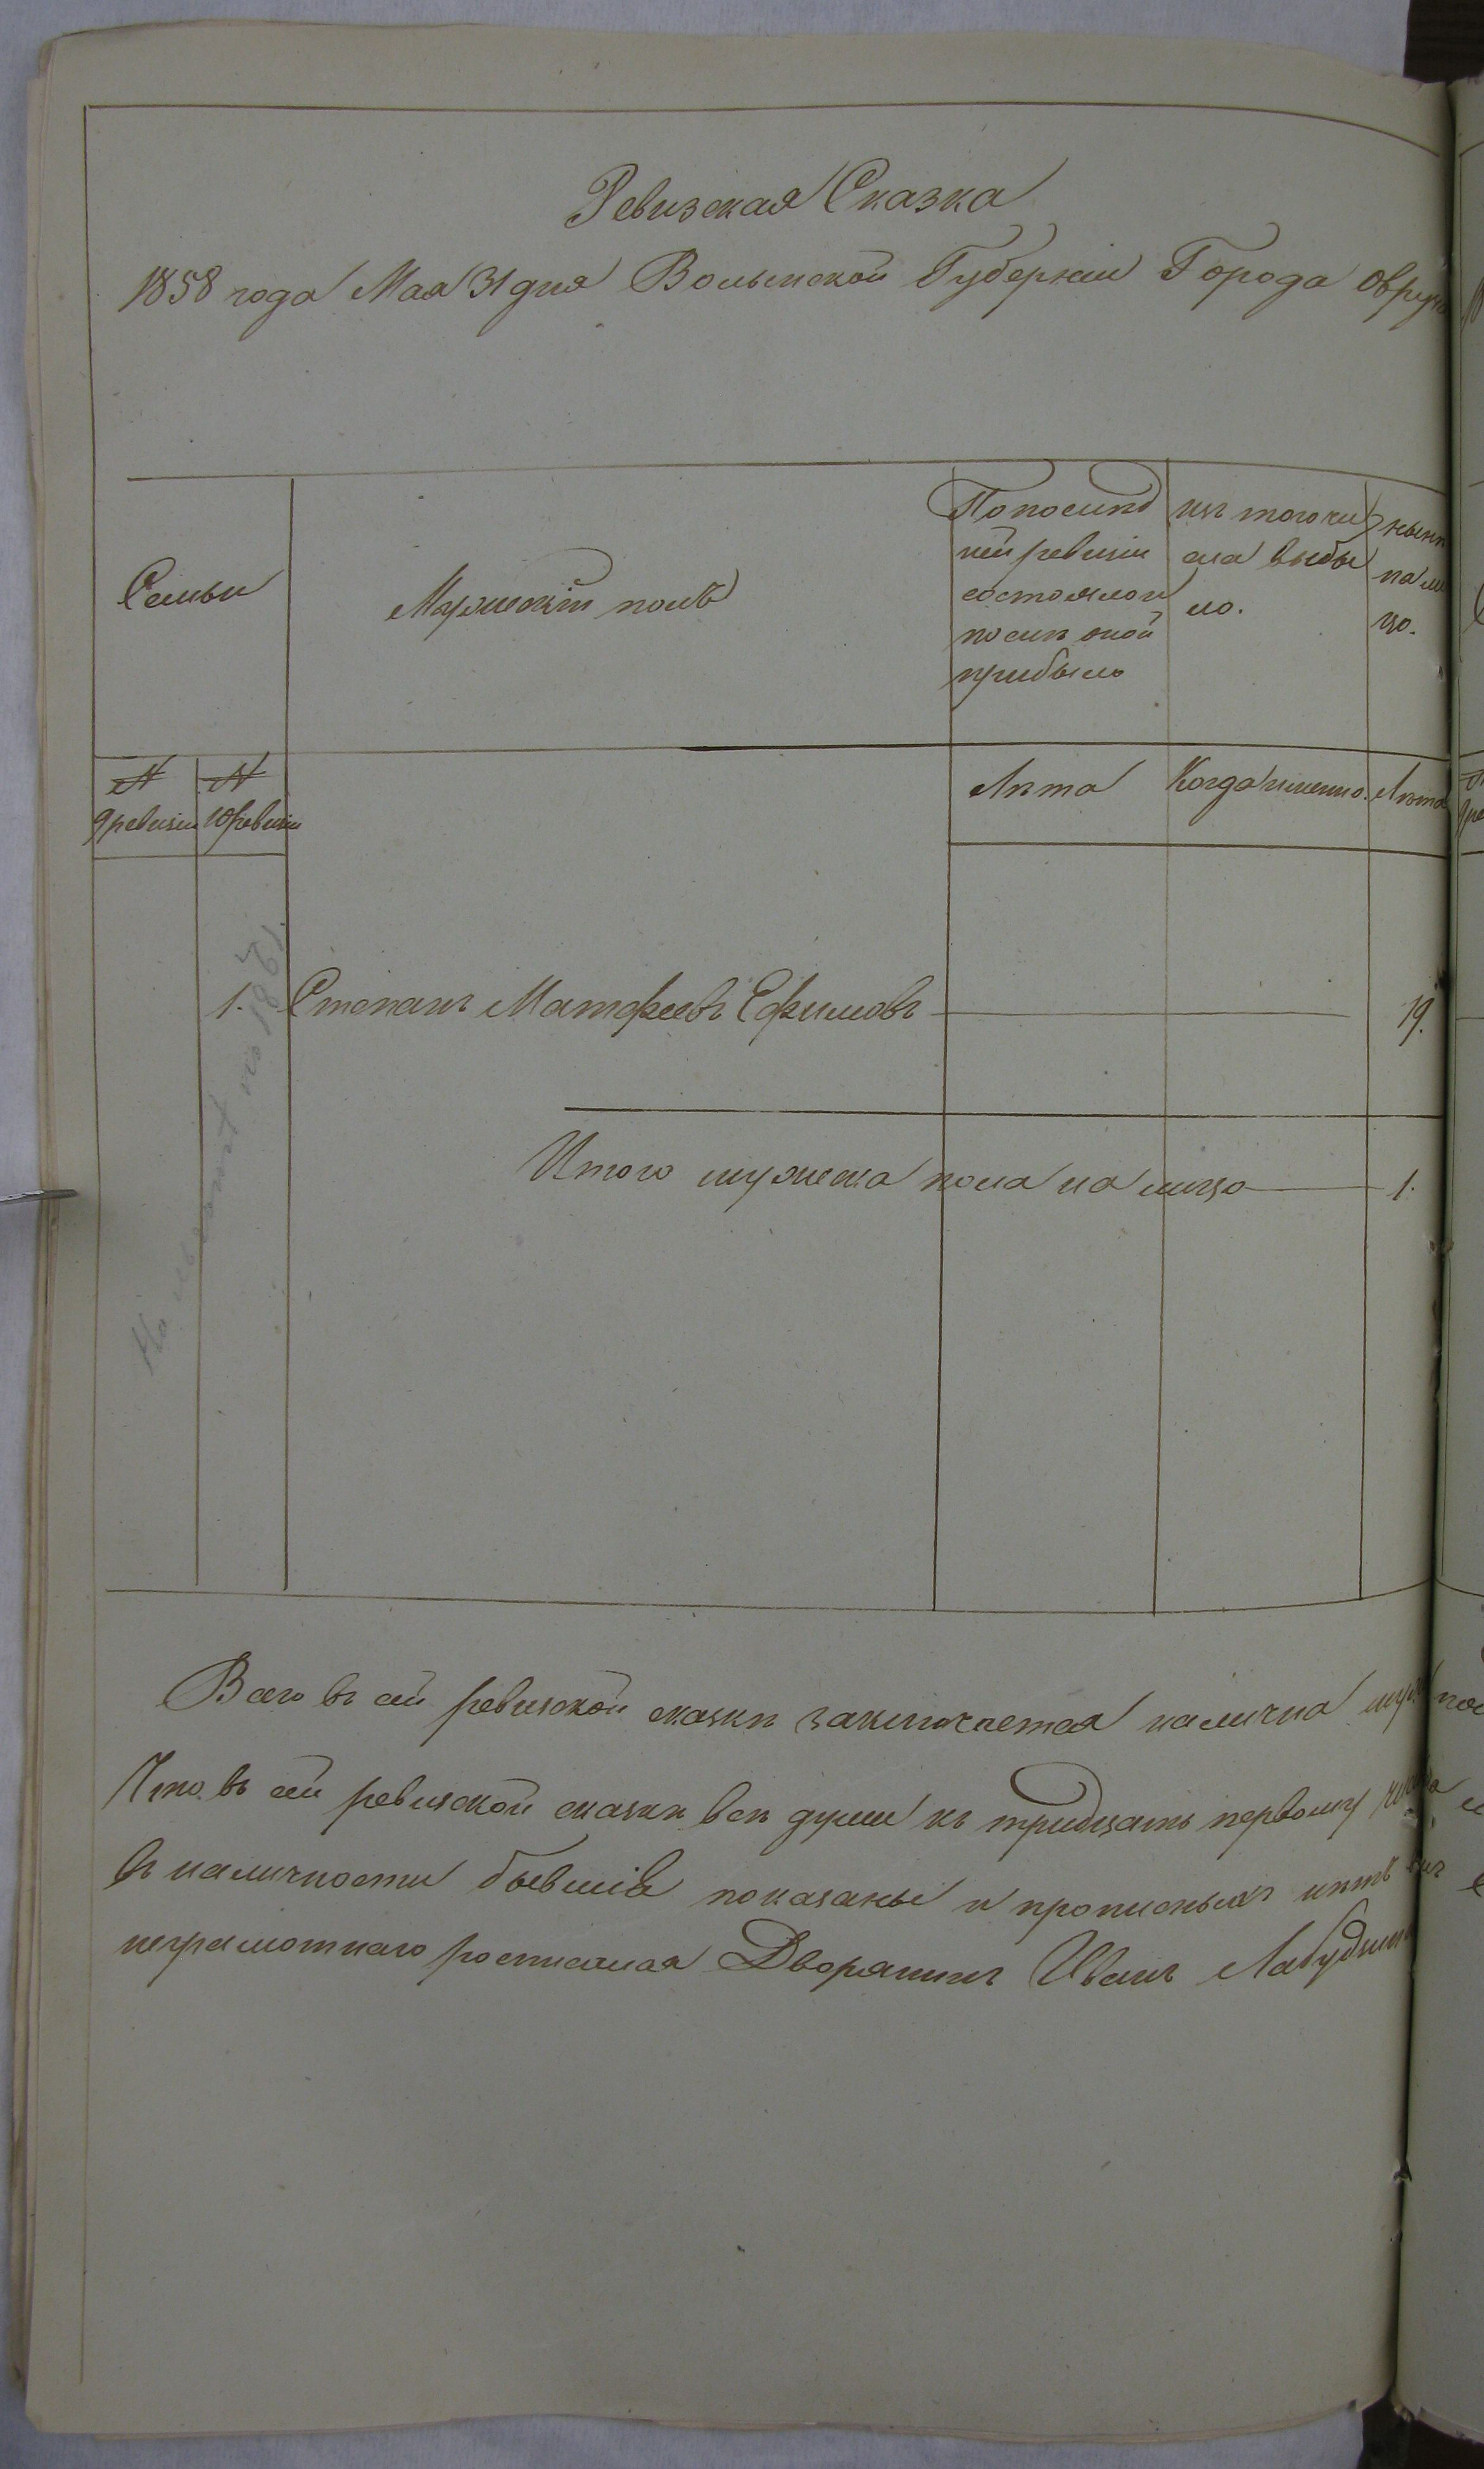 Ревизская Сказка
1858 года Мая 31 дня Волынской Губернiи Города Овруча
Семьи
Мужескiй полъ
По послѣд
ней ревизiи
состояло и
послѣ оной
прибыло
изъ того чи
сла выбы
ло.
нынѣ
на ли
цо.
№
9 ревизiи
№
10 ревизiи
Лѣта
Когда именно.
Лѣта
1.
Степанъ Матфеевъ Ефимовъ
19.
Итого мужеска пола на лицо
1.
Всего въ сей ревизской сказкѣ заключается налична муж
Что въ сей ревизской сказкѣ всѣ души къ тридцать первому
въ наличности бывшiя показаны и прописныхъ нѣтъ
неграмотнаго росписался Дворянинъ Иванъ